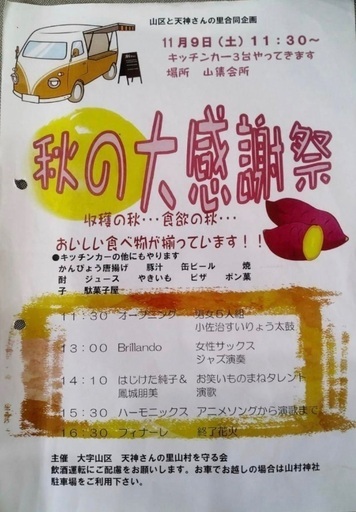 山区と天神さんの里合同企画
11月9日（土）11：30～
キッチンカー3台やってきます
場所　山集会所
秋の大感謝祭
収穫の秋・・・食欲の秋・・・
おいしい食べ物が揃っています！！
●キッチンカーの他にもやります
かんぴょう唐揚げ　豚汁　缶ビール　焼
酎　ジュース　やきいも　ピザ　ポン菓
子　駄菓子屋
11：30　オープニング　男女6人組
小佐治すいりょう太鼓
13：00　Brillando　女性サックス
ジャズ演奏
14：10　はじけた純子＆　お笑いものまねタレント
鳳城朋美　演歌
15：30　ハーモニックス　アニメソングから演歌まで
16：30　フィナーレ　終了花火
主催　大字山区　天神さんの里山村を守る会
飲酒運転にご配慮をお願いします。お車でお越しの場合は山村神社
駐車場をご利用下さい。